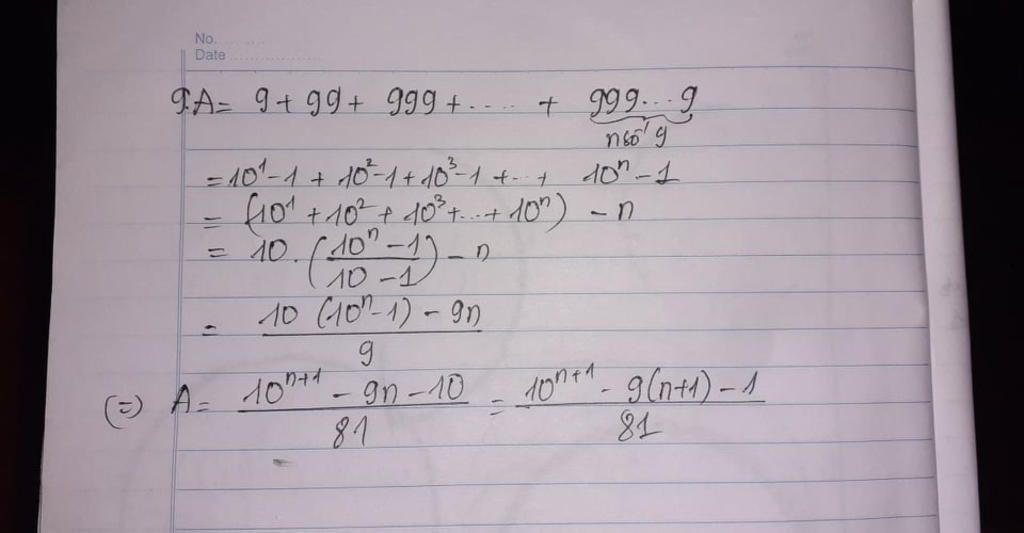 No.
Date
9.A = 9 + 99 + 999 + ..... + 999...9
n số 9
= 10¹ - 1 + 10² - 1 + 10³ - 1 + ... + 10ⁿ - 1
= (10¹ + 10² + 10³ + ... + 10ⁿ) - n
= 10 . ((10ⁿ - 1)/(10 - 1)) - n
= (10 (10ⁿ - 1) - 9n)/9
(=) A = (10ⁿ⁺¹ - 9n - 10)/81 = (10ⁿ⁺¹ - 9(n+1) - 1)/81